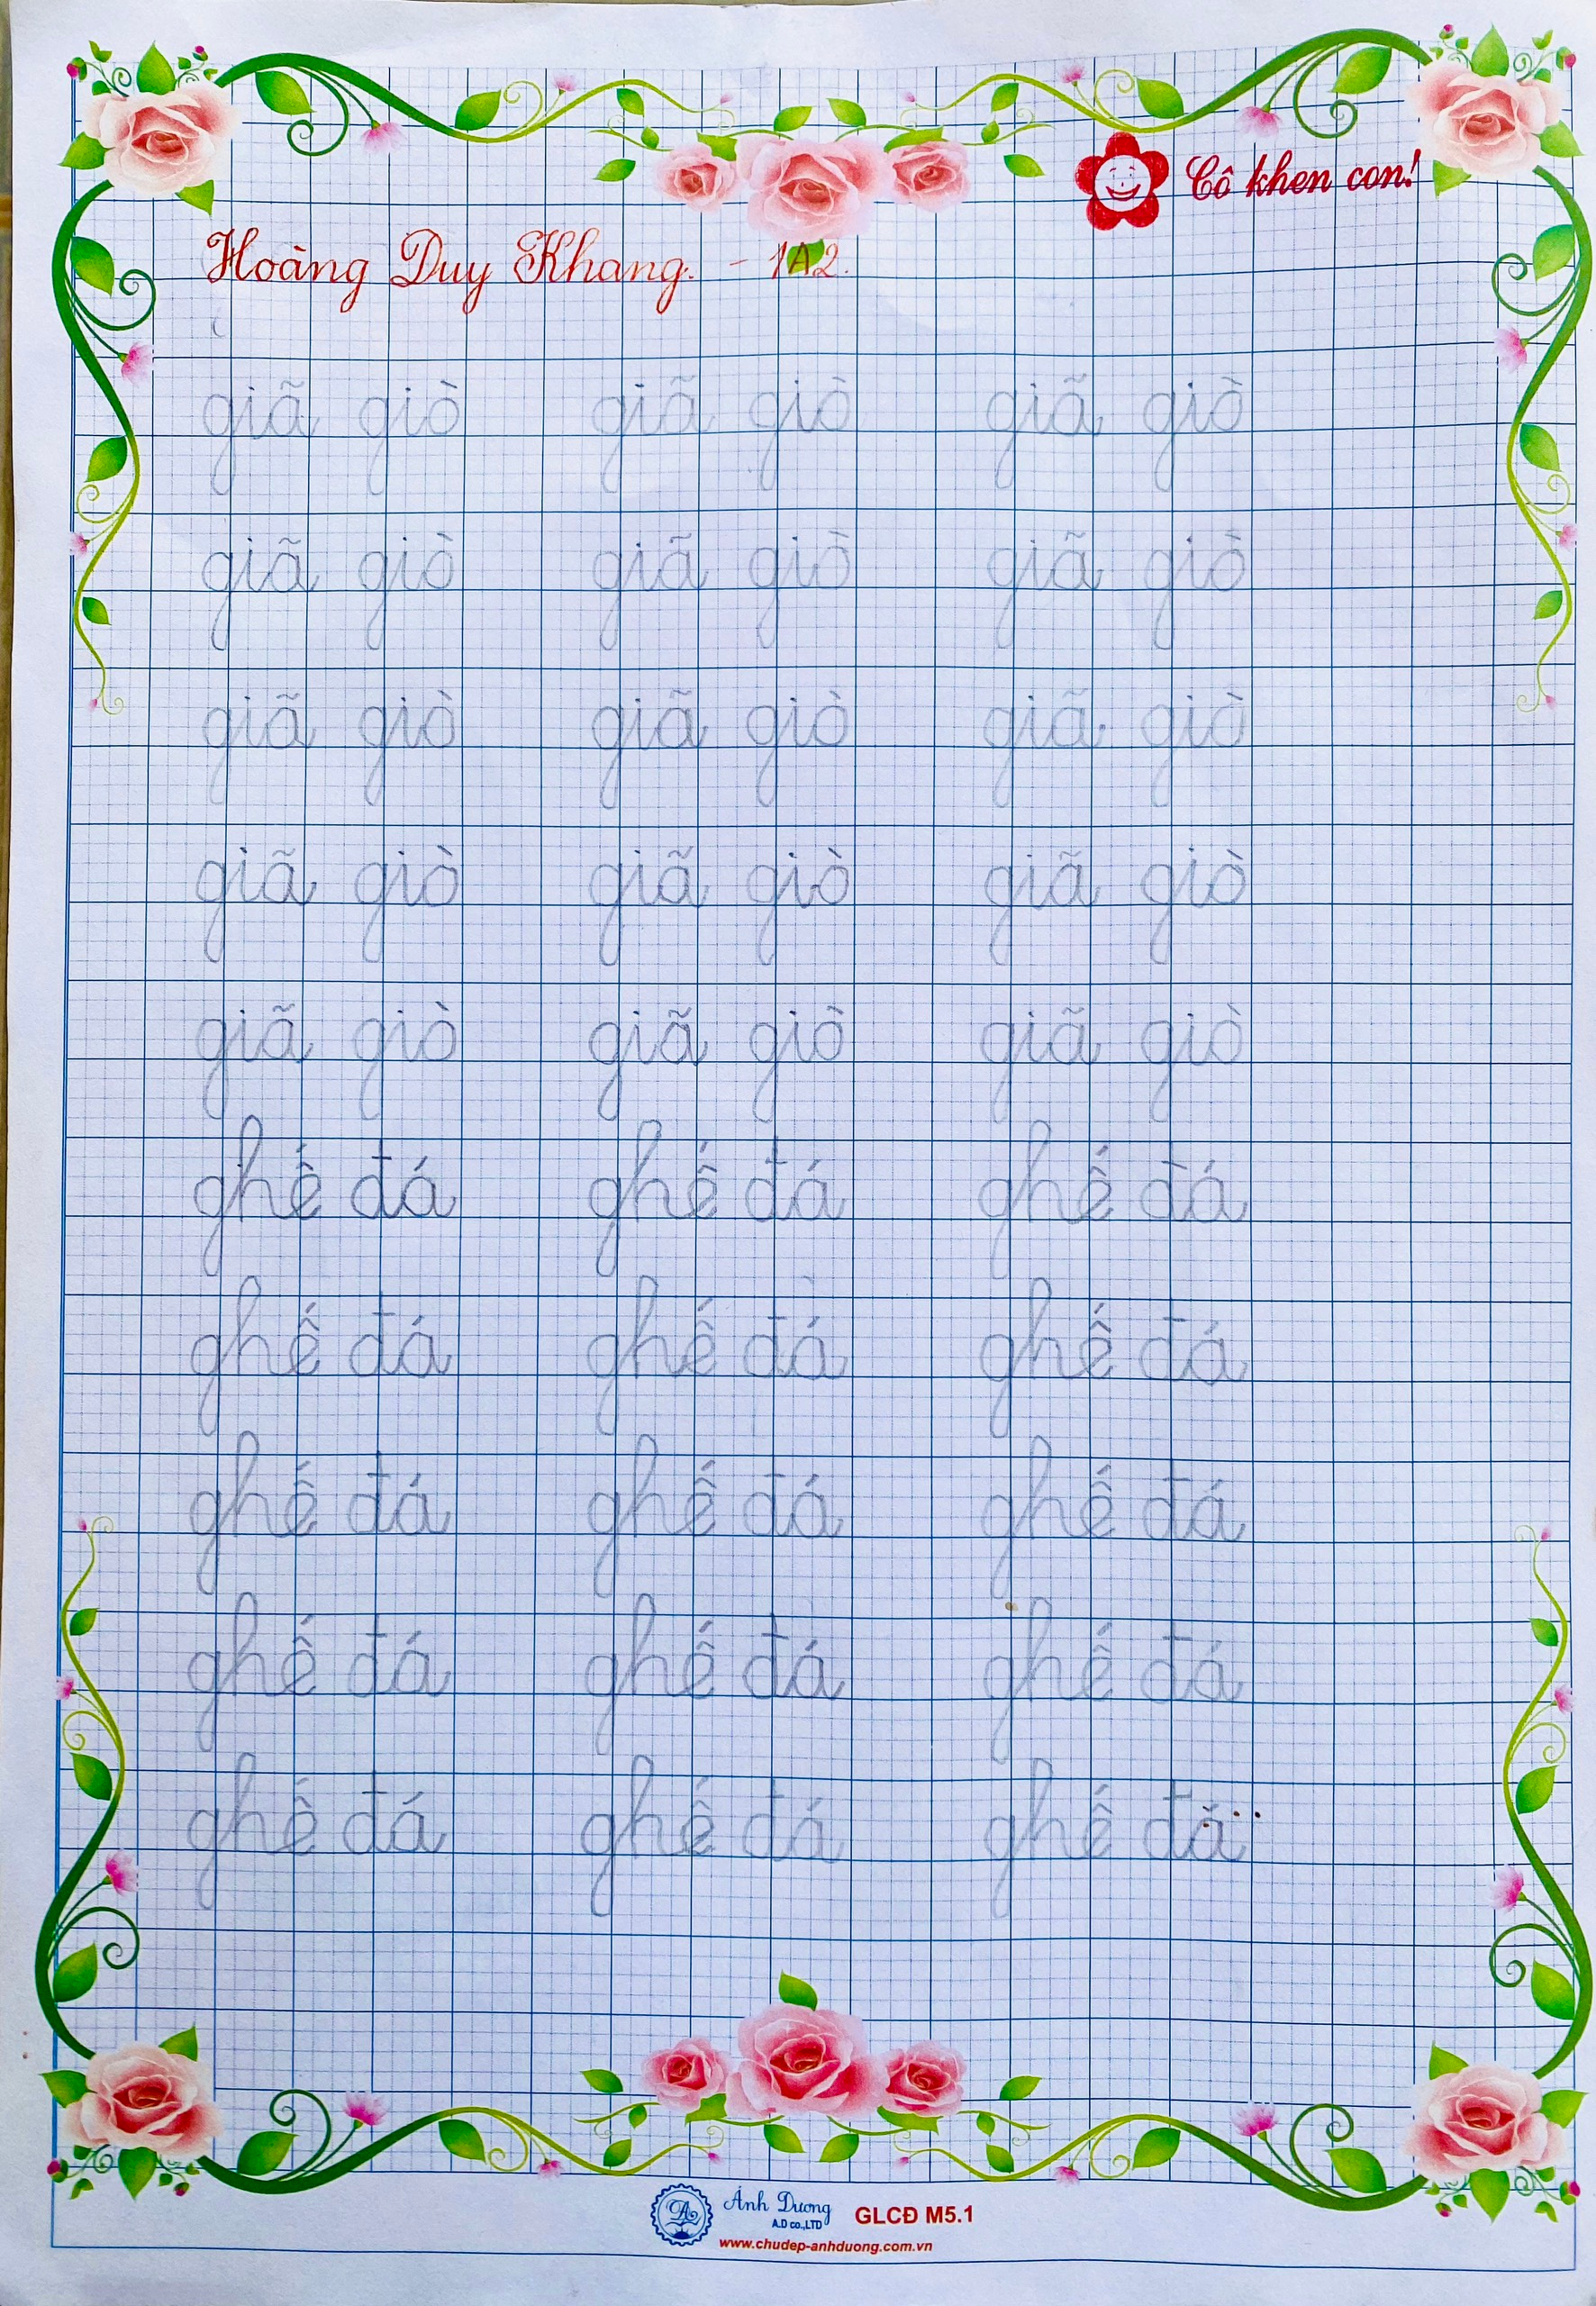 Cô khen con!
Hoàng Duy Khang. - 1A2.
giã giò giã giò giã giò
giã giò giã giò giã giò
giã giò giã giò giã giò
giã giò giã giò giã giò
giã giò giã giò giã giò
ghế đá ghế đá ghế đá
ghế đá ghế đá ghế đá
ghế đá ghế đá ghế đá
ghế đá ghế đá ghế đá
ghế đá ghế đá ghế đá
Ánh Dương
A.D co.,LTD
GLCĐ M5.1
www.chudep-anhduong.com.vn